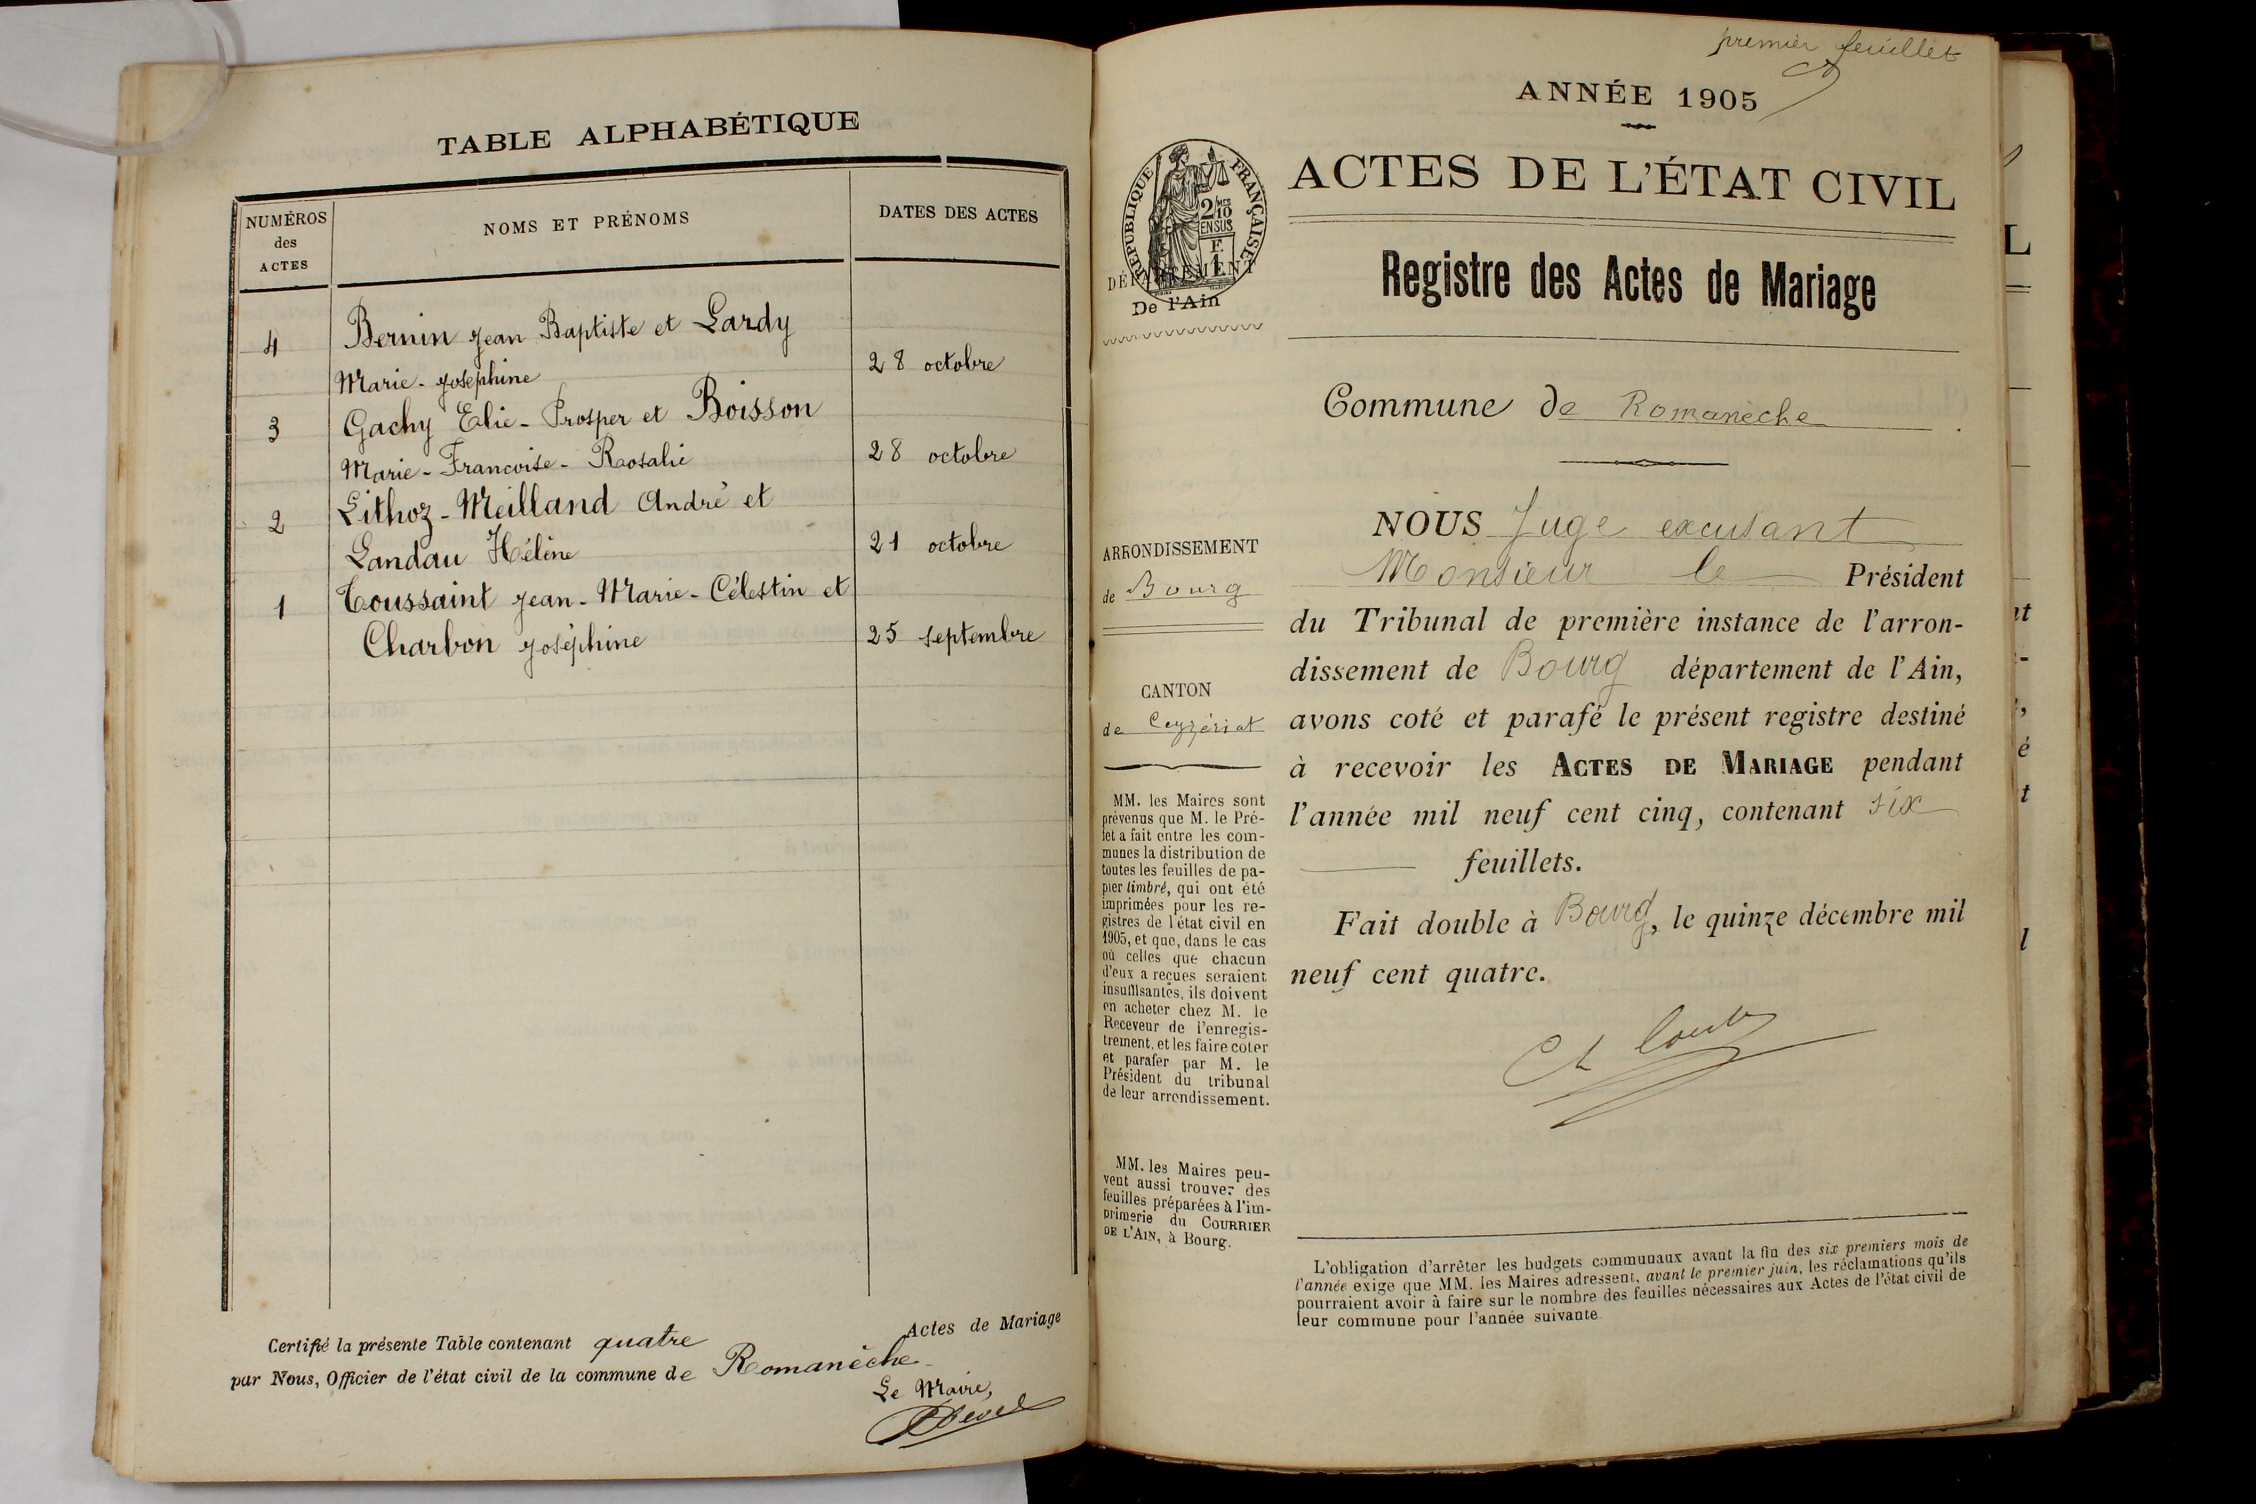 TABLE ALPHABÉTIQUE
NUMÉROS
des
ACTES
NOMS ET PRÉNOMS
DATES DES ACTES
4 Bernin Jean Baptiste et Lardy
Marie-Joséphine 28 octobre
3 Gachy Elie-Prosper et Boisson
Marie-Francoise-Rosalie 28 octobre
2 Lithoz-Meilland André et
Landau Hélène 21 octobre
1 Toussaint Jean-Marie-Célestin et
Charbon Joséphine 25 septembre
Certifié la présente Table contenant quatre Actes de Mariage
par Nous, Officier de l'état civil de la commune de Romanèche
Le Maire,
premier feuillet
ANNÉE 1905
ACTES DE L'ÉTAT CIVIL
RÉPUBLIQUE FRANÇAISE
2/10 MES
EN SUS
F.
1
DÉPARTEMENT
De l'Ain
Registre des Actes de Mariage
Commune de Romanèche
ARRONDISSEMENT
de Bourg
CANTON
de Ceyzériat
MM. les Maires sont
prévenus que M. le Pré-
fet a fait entre les com-
munes la distribution de
toutes les feuilles de pa-
pier timbré, qui ont été
imprimées pour les re-
gistres de l'état civil en
1905, et que, dans le cas
où celles que chacun
d'eux a reçues seraient
insuffisantes, ils doivent
en acheter chez M. le
Receveur de l'enregis-
trement, et les faire coter
et parafer par M. le
Président du tribunal
de leur arrondissement.
MM. les Maires peu-
vent aussi trouver des
feuilles préparées à l'im-
primerie du COURRIER
DE L'AIN, à Bourg.
NOUS Juge excusant
Monsieur le Président
du Tribunal de première instance de l'arron-
dissement de Bourg département de l'Ain,
avons coté et parafé le présent registre destiné
à recevoir les ACTES DE MARIAGE pendant
l'année mil neuf cent cinq, contenant six
feuillets.
Fait double à Bourg, le quinze décembre mil
neuf cent quatre.
L'obligation d'arrêter les budgets communaux avant la fin des six premiers mois de
l'année exige que MM. les Maires adressent, avant le premier juin, les réclamations qu'ils
pourraient avoir à faire sur le nombre des feuilles nécessaires aux Actes de l'état civil de
leur commune pour l'année suivante.